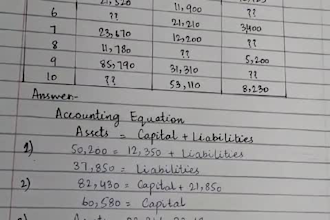 21,520
6 ?? 11,900
7 23,670 21,210 ??
8 11,780 12,200 3,400
9 85,790 ?? ??
10 ?? 31,310 5,200
53,110 8,230
Answer:-
Accounting Equation
Assets = Capital + Liabilities
1) 50,200 = 12,350 + Liabilities
37,850 = Liabilities
2) 82,430 = Capital + 21,850
60,580 = Capital